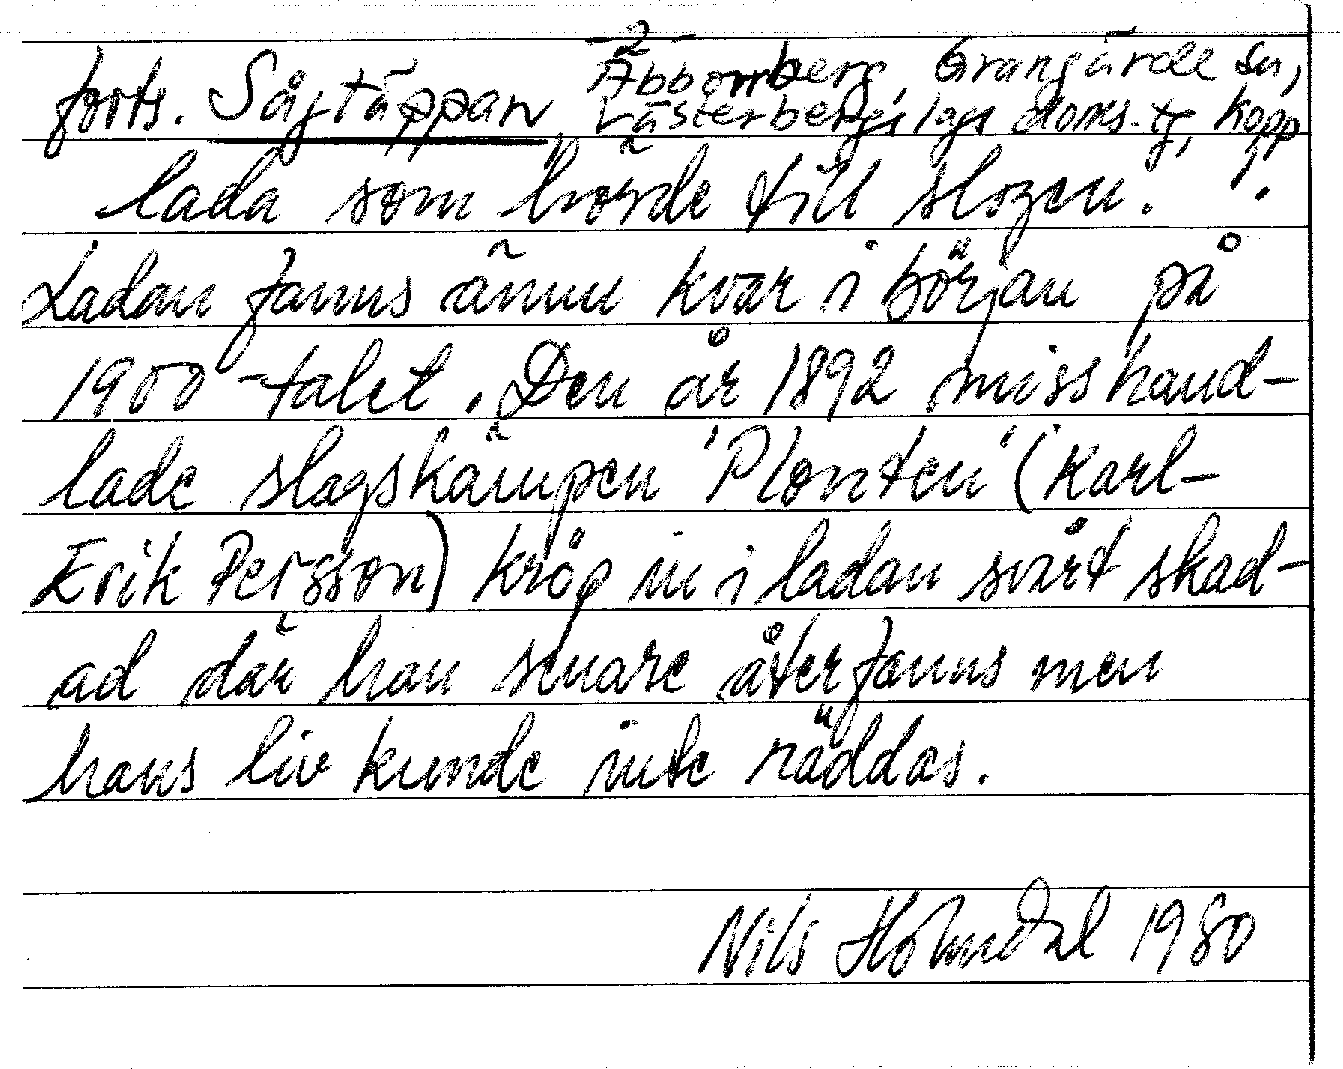 -2-
forts. Sågtäppan Abbomberg, Grangärde sn,
Västerbergslags doms.tg, Kopp.
lada som hörde till slogen.
Ladan fanns ännu kvar i början på
1900-talet. Den år 1892 misshand-
lade slagskämpen 'Plonten' (Karl-
Erik Persson) kröp in i ladan svårt skad-
ad där han senare återfanns men
hans liv kunde inte räddas.
Nils Holmdal 1980